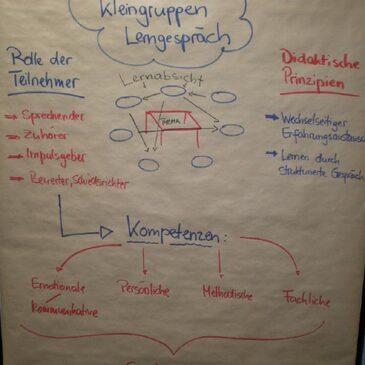 Kleingruppen
Lerngespräch
Rolle der
Teilnehmer
→ Sprechender
→ Zuhörer
→ Impulsgeber
→ Bewerter, Schiedsrichter
Lernabsicht
THEMA
Didaktische
Prinzipien
→ Wechselseitiger
Erfahrungsaustausch
→ Lernen durch
strukturierte Gespräch
Kompetenzen:
Emotionale
Kommunikative
Persönliche
Methodische
Fachliche